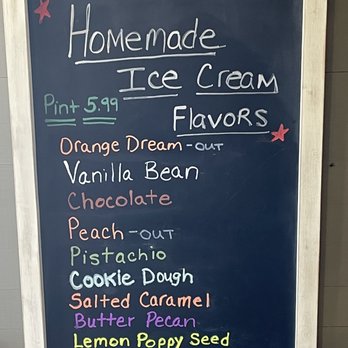 Homemade
Ice Cream
Pint 5.99
Flavors
Orange Dream - OUT
Vanilla Bean
Chocolate
Peach - OUT
Pistachio
Cookie Dough
Salted Caramel
Butter Pecan
Lemon Poppy Seed